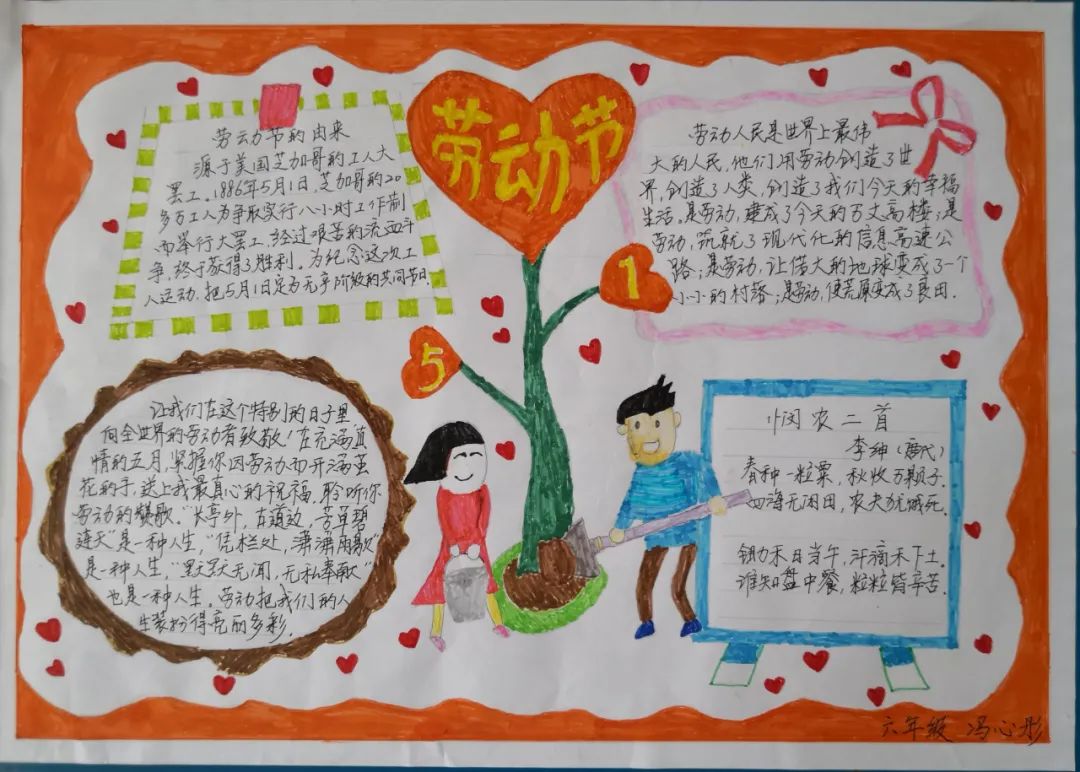 劳动节
1
5
劳动节的由来
源于美国芝加哥的工人大
罢工。1886年5月1日,芝加哥的20
多万工人为争取实行八小时工作制
而举行大罢工,经过艰苦的流血斗
争,终于获得了胜利。为纪念这次工
人运动,把5月1日定为无产阶级的共同节日。
劳动人民是世界上最伟
大的人民,他们用劳动创造了世
界,创造了人类,创造了我们今天的幸福
生活。是劳动,建成了今天的万丈高楼;是
劳动,筑就了现代化的信息高速公
路;是劳动,让偌大的地球变成了一个
小小的村落;是劳动,使荒原变成了良田.
让我们在这个特别的日子里
向全世界的劳动者致敬!在充满真
情的五月,紧握你因劳动而开满
花的手,送上我最真心的祝福,聆听你
劳动的赞歌。"长亭外,古道边,芳草碧
连天"是一种人生,"凭栏处,潇潇雨歇"
是一种人生,"默默无闻,无私奉献"
也是一种人生。劳动把我们的人
生装扮得亮丽多彩.
悯农二首
李绅(唐代)
春种一粒粟,秋收万颗子.
四海无闲田,农夫犹饿死.
锄禾日当午,汗滴禾下土.
谁知盘中餐,粒粒皆辛苦.
六年级 冯心彤